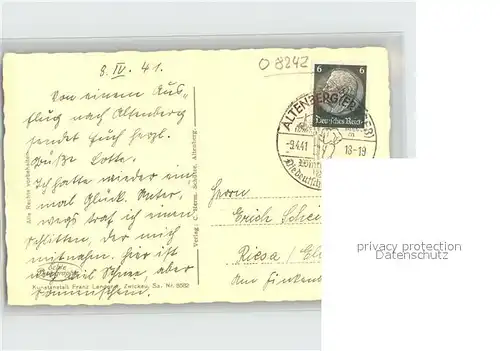 8. IV. 41.
O 8242
Von einem Aus-
flug nach Altenberg
sendet Euch herzl.
Grüße Lotte.
Ich hatte wieder ein-
mal Glück. Unter-
wegs traf ich einen
Schlitten, der mich
mitnahm. hier ist
viel Schnee, aber
Sonnenschein.
Alle Rechte vorbehalten
Echte Photographie
Kunstanstalt Franz Landgraf, Zwickau, Sa. Nr. 8582
Verlag: C. Herm. Schütze, Altenberg.
6 6
Deutsches Reich
ALTENBERG (ERZGEB)
-9.4.41 18-19
Herrn
Erich
Riesa /
Am
privacy protection
Datenschutz